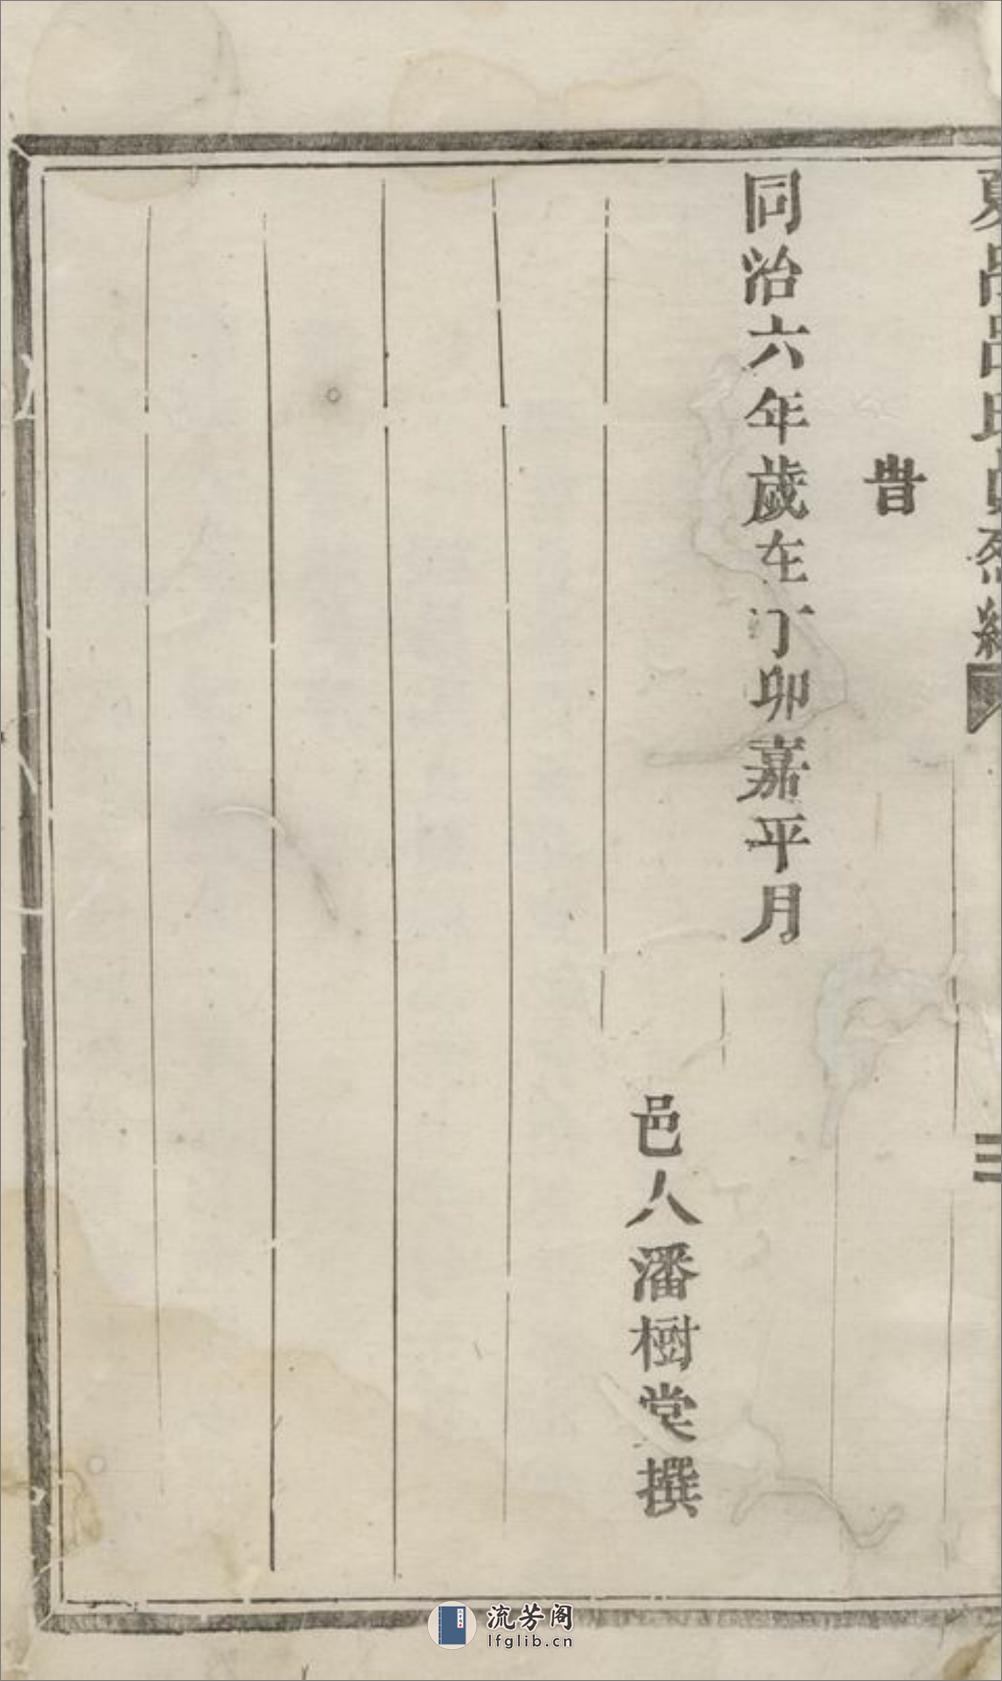 呂氏貞烈
三
旹
同治六年歲在丁卯嘉平月
邑人潘樹堂撰
流芳阁
lfglib.cn